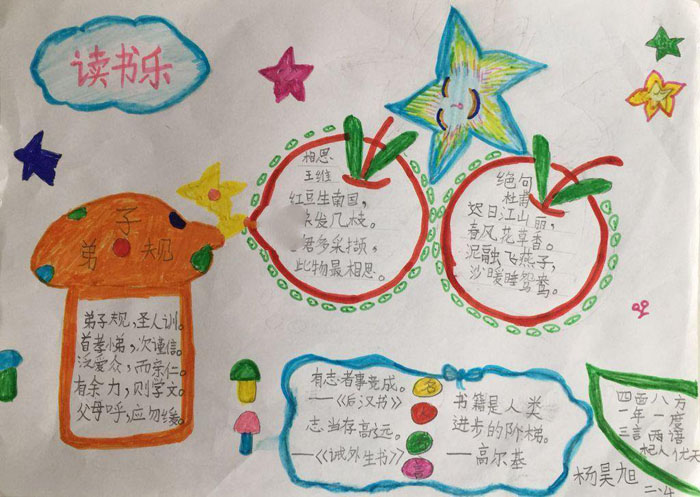 读书乐
弟子规
弟子规,圣人训。
首孝悌,次谨信。
泛爱众,而亲仁。
有余力,则学文。
父母呼,应勿缓。
相思
王维
红豆生南国,
发几枝。
君多采撷,
此物最相思。
绝句
杜甫
迟日江山丽,
春风花草香。
泥融飞燕子,
沙暖睡鸳鸯。
有志者事竟成。
——《后汉书》
志当存高远。
——《诫外生书》
名
言
书籍是人类
进步的阶梯。
——高尔基
四面八方
一年一度
三言两语
杞人忧天
杨昊旭
二、4